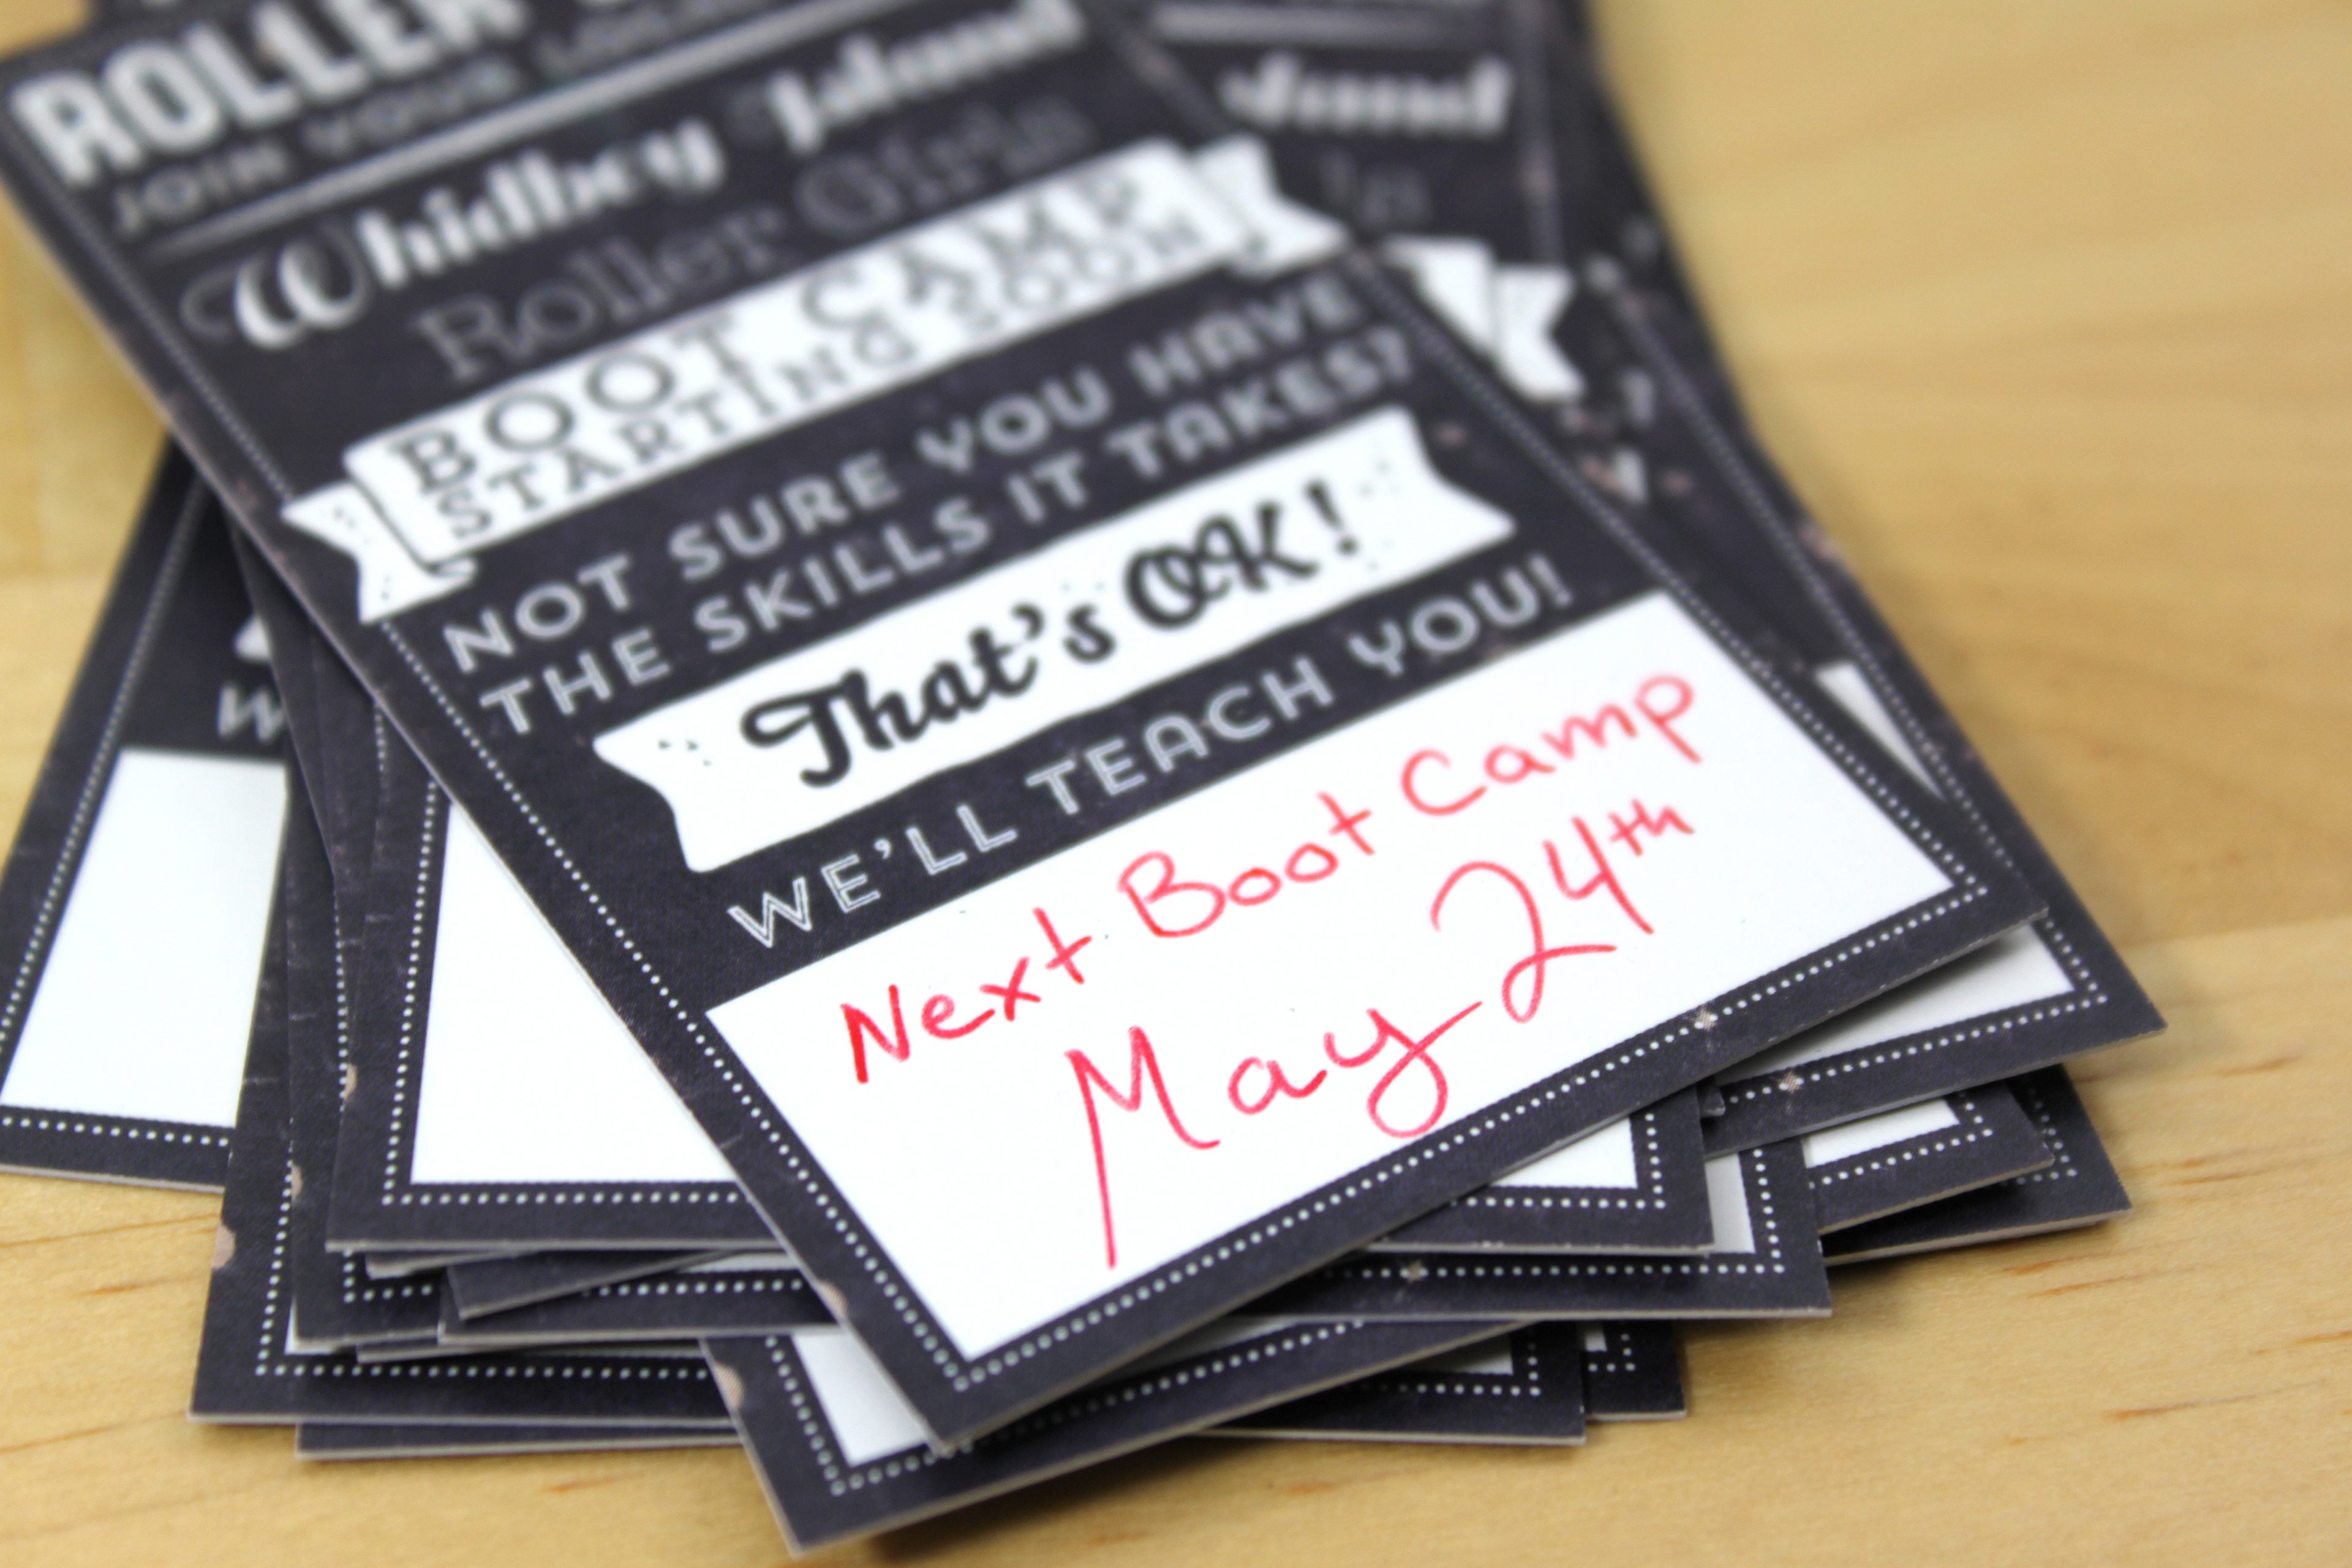 ROLLER
JOIN YOUR
Whidbey Island
Roller Girls
BOOT CAMP
STARTING SOON
NOT SURE YOU HAVE
THE SKILLS IT TAKES?
That's OK!
WE'LL TEACH YOU!
Next Boot Camp
May 24th